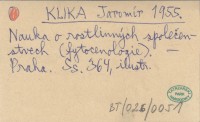 KLIKA Jaromír 1955.
Nauka o rostlinných společen-
stvech (fytocenologie). —
Praha. Ss. 364, ilustr.
BT/026/0051